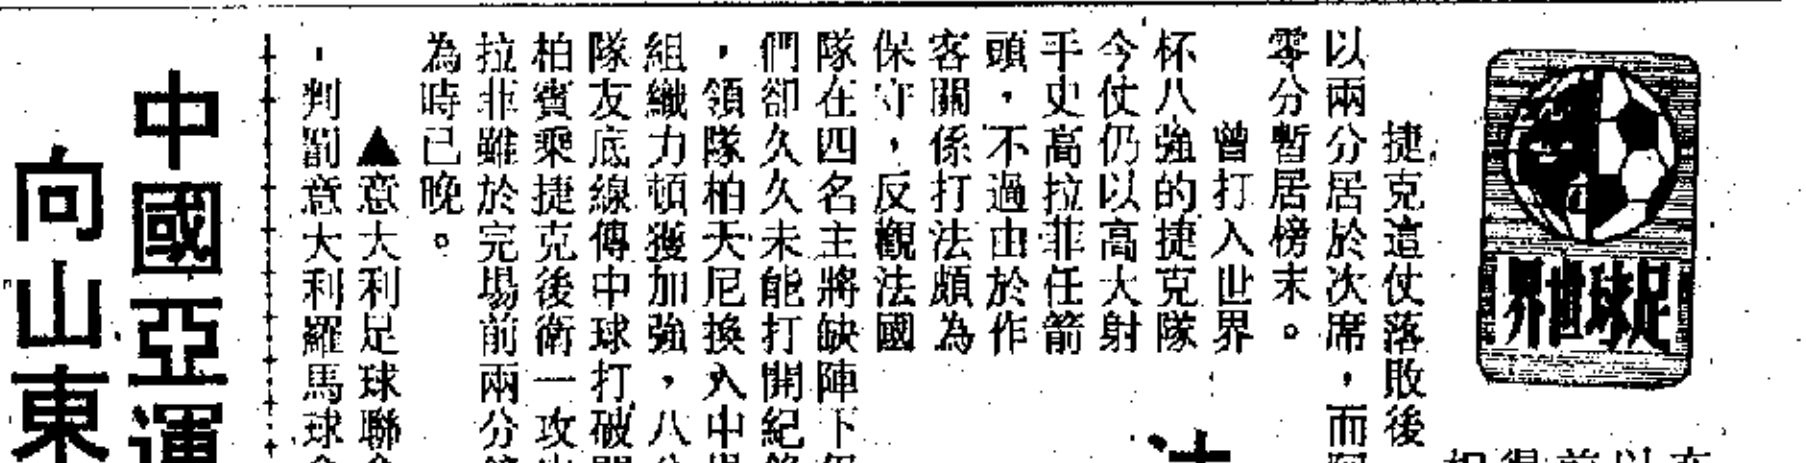 足球世界
捷克這仗落敗後
以兩分居於次席，而阿
零分暫居榜末。
曾打入世界
杯八強的捷克隊
今仗仍以高大射
手史高拉菲任箭
頭，不過由於作
客關係打法頗為
保守，反觀法國
隊在四名主將缺陣下
們卻久久未能打開紀
，領隊柏天尼換入中
組織力頓獲加強，八
隊友底線傳中球打破
柏賓乘捷克後衛一攻
拉菲雖於完場前兩分
為時已晚。
▲意大利足球聯
，判罰意大利羅馬球
中國亞運
向山東